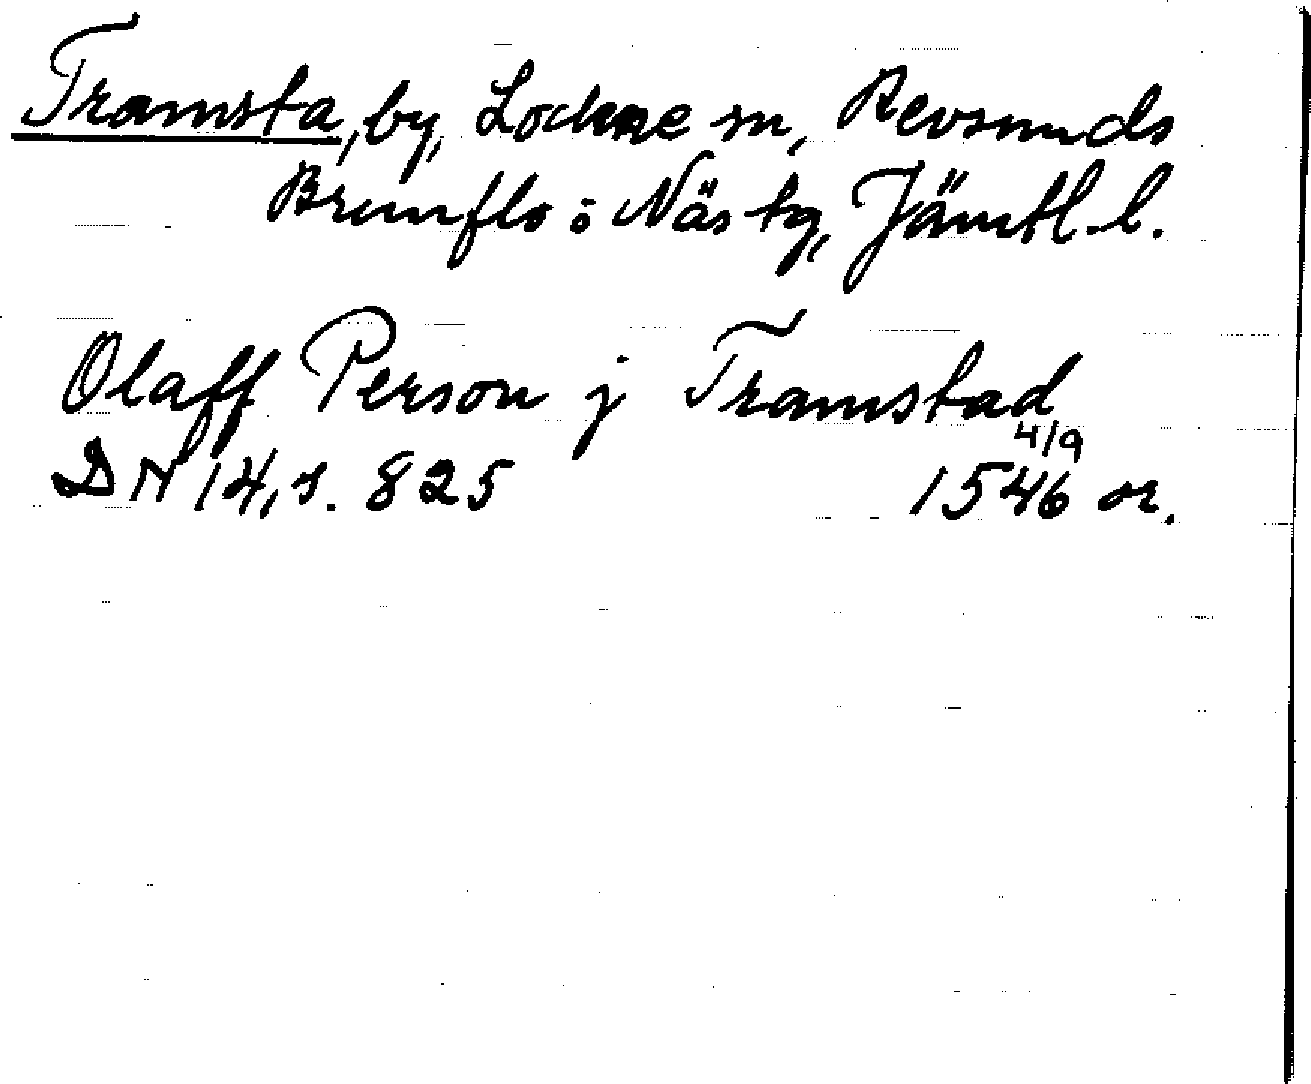 Tramsta, by, Lockne sn, Revsunds
Brunflo o Näs tg, Jämtl. l.
Olaff Person j Tramstad
4/9
DN 14, s. 825 1546 or.